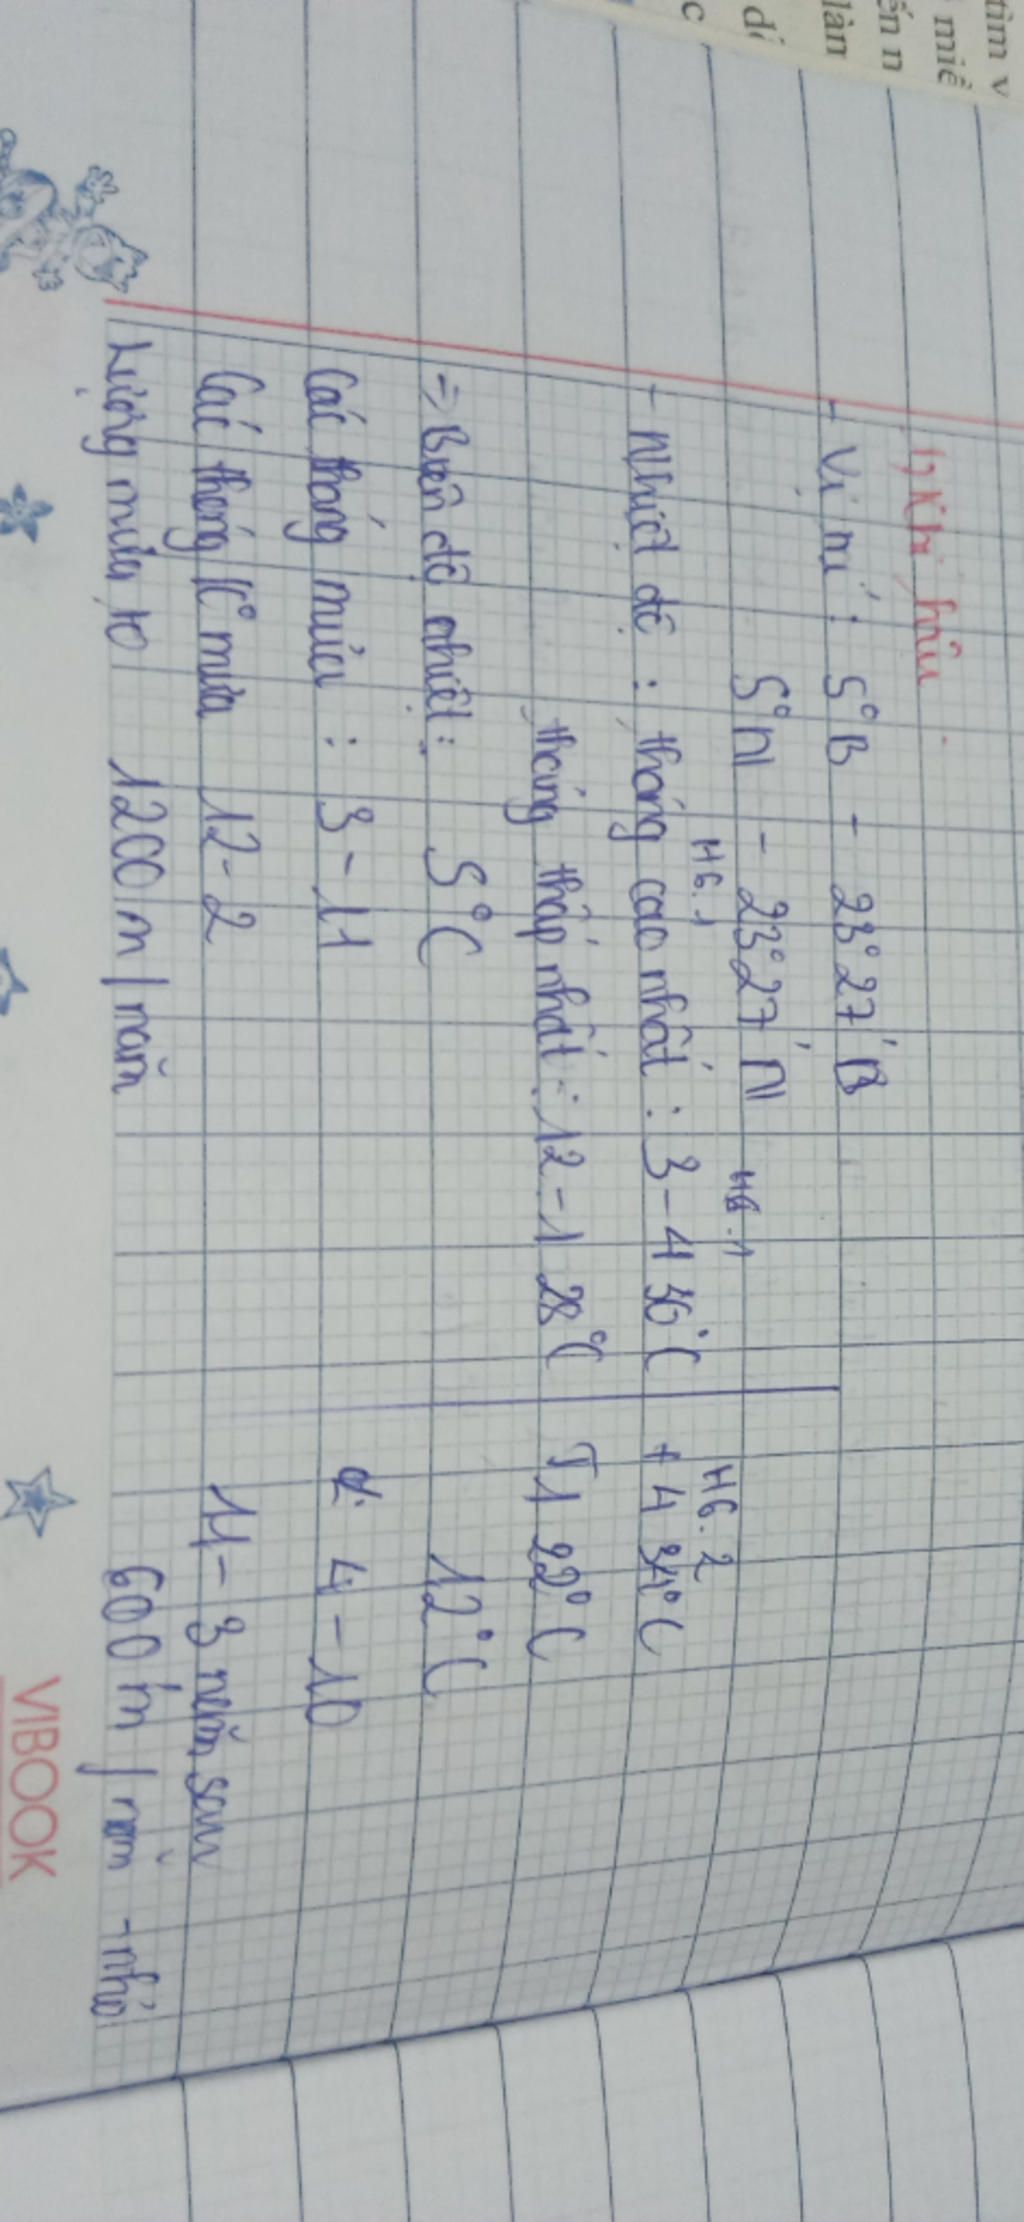 tìm v
miề
ến n
làn
dí
c
1, Khí hậu
- Vị trí : 5°B - 23°27'B
5°N - 23°27'N
H6.1 H6.1 H6.2
- Nhiệt độ : tháng cao nhất : 3-4 30°C + 4 34°C
tháng thấp nhất : 12-1 28°C T1 22°C
=> Biên độ nhiệt : 5°C 12°C
Các tháng mưa : 3-11 4-10
Các tháng k° mưa 12-2 11-3 năm sau
Lượng mưa 1200 m/năm 600 m/năm -nhỏ
VIBOOK